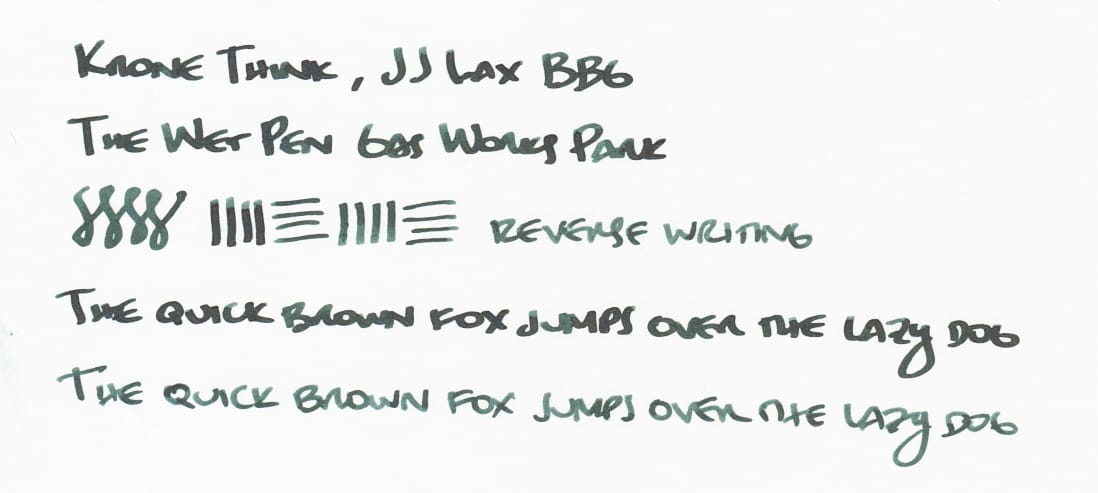 KRONE THINK, JJ LAX BBG
THE WET PEN GAS WORKS PARK
REVERSE WRITING
THE QUICK BROWN FOX JUMPS OVER THE LAZY DOG
THE QUICK BROWN FOX JUMPS OVER THE LAZY DOG